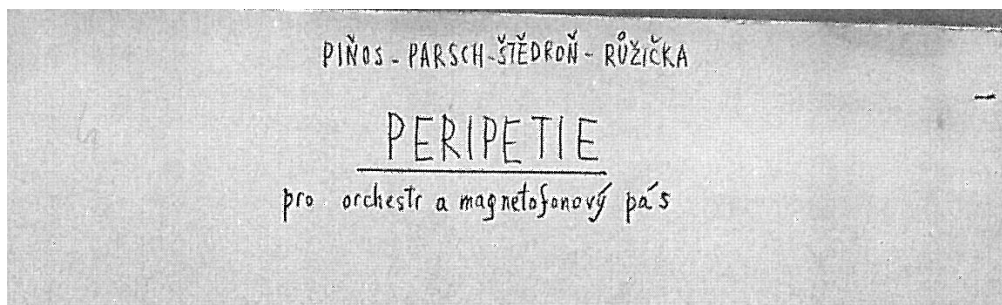 PIŇOS - PARSCH - ŠTĚDROŇ - RŮŽIČKA
PERIPETIE
pro orchestr a magnetofonový pás